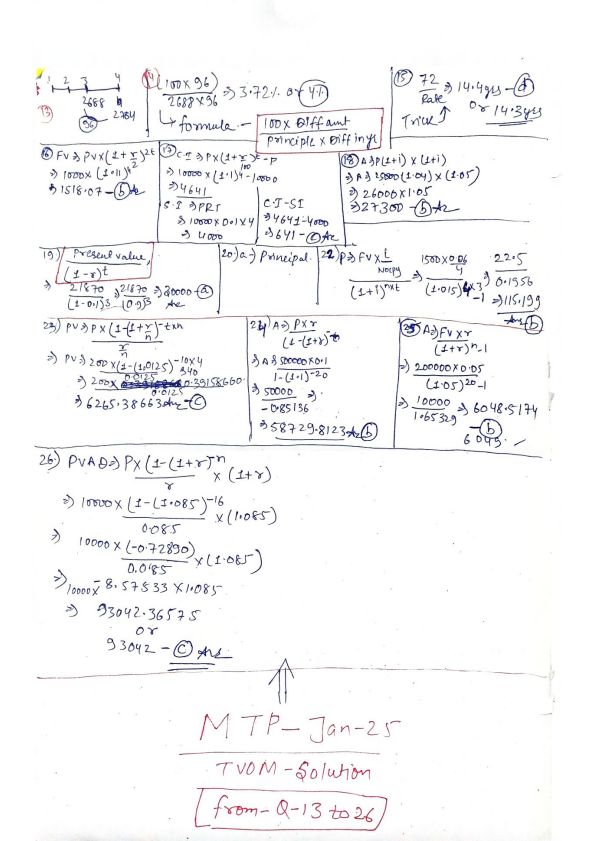 1 2 3 4
13)
2688 2784
96
14) (100 x 96)
2688 x 96
⇒ 3.72% or 4%
↳ formula -
100 x Diff amt
Principle x Diff in yr
15) 72
Rate
⇒ 14.4 yrs - d
or 14.3 yrs
Trick ↑
16) FV ⇒ PV x (1 + r/2)^2t
⇒ 1000 x (1.11)^4
⇒ 1518.07 - b Ans
17) C.I ⇒ P x (1 + r/100)^t - P
⇒ 10000 x (1.1)^4 - 10000
⇒ 4641
S.I ⇒ PRT
⇒ 10000 x 0.1 x 4
⇒ 4000
C.I - SI
⇒ 4641 - 4000
⇒ 641 - c Ans
18) A ⇒ P(1+i) x (1+i)
⇒ A ⇒ 25000 (1.04) x (1.05)
⇒ 26000 x 1.05
⇒ 27300 - b Ans
19) Present value
(1 - r)^t
⇒ 21870
(1 - 0.1)^3
⇒ 21870
(0.9)^3
⇒ 30000 - a
Ans
20) a - Principal
22) P ⇒ FV x i
Nocpy
(1 + i)^nxt
⇒ 1500 x 0.06
4
(1.015)^4x3 - 1
⇒ 22.5
0.1956
⇒ 115.199
Ans b
23) PV ⇒ P x (1 - (1 + r/n)^-txn)
r/n
⇒ PV ⇒ 200 x (1 - (1.0125)^-10x4)
0.0125
⇒ 200 x 0.39158660
0.0125
⇒ 6265.38663 Ans - c
24) A ⇒ P x r
(1 - (1 + r)^-t)
⇒ A ⇒ 500000 x 0.1
1 - (1.1)^-20
⇒ 50000
-0.85136
⇒
⇒ 58729.8123 Ans b
25) A ⇒ FV x r
(1 + r)^n - 1
⇒ 200000 x 0.05
(1.05)^20 - 1
⇒ 10000
1.65329
⇒ 6048.5174
- b
6049.
26) PVAD ⇒ P x (1 - (1 + r)^-n
r
x (1 + r)
⇒ 10000 x (1 - (1.085)^-16
0.085
x (1.085)
⇒ 10000 x (-0.72890)
0.085
x (1.085)
⇒ 10000 x -8.57533 x 1.085
⇒ 93042.36575
or
93042 - c Ans
MTP - Jan-25
TVOM - Solution
from - Q-13 to 26